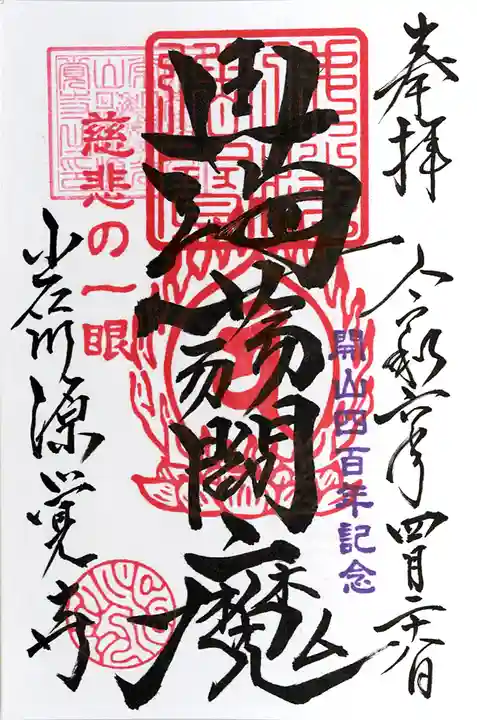 奉拝 令和六年四月
開山四百年記念
蒟蒻閻魔
慈悲の一眼
小石川源覚寺